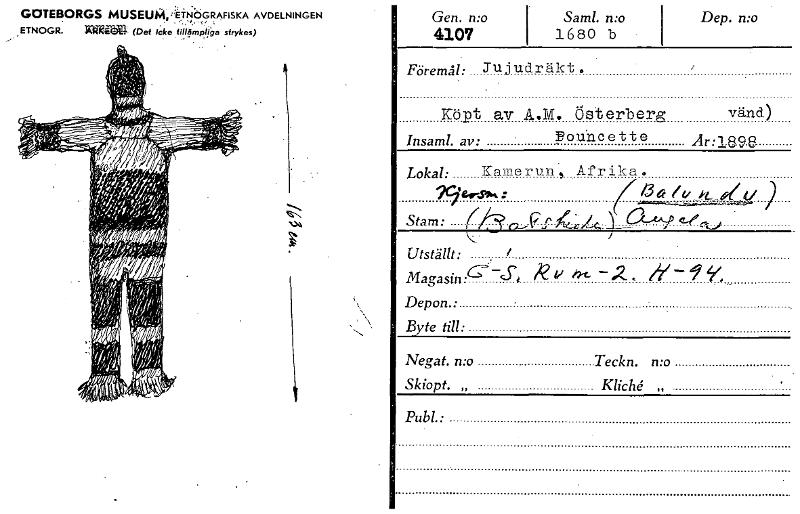 GÖTEBORGS MUSEUM, ETNOGRAFISKA AVDELNINGEN
ETNOGR. ARKEOL. (Det icke tillämpliga strykes)
163 cm.
Gen. n:o Saml. n:o Dep. n:o
4107 1680 b
Föremål: Jujudräkt.
Köpt av A.M. Österberg vänd)
Insaml. av: Pouncette År: 1898
Lokal: Kamerun, Afrika.
(Balundu)
Stam: Angela
Utställt:
Magasin: G-S. Rum-2. H-94.
Depon.:
Byte till:
Negat. n:o Teckn. n:o
Skiopt. „ Kliché „
Publ.: